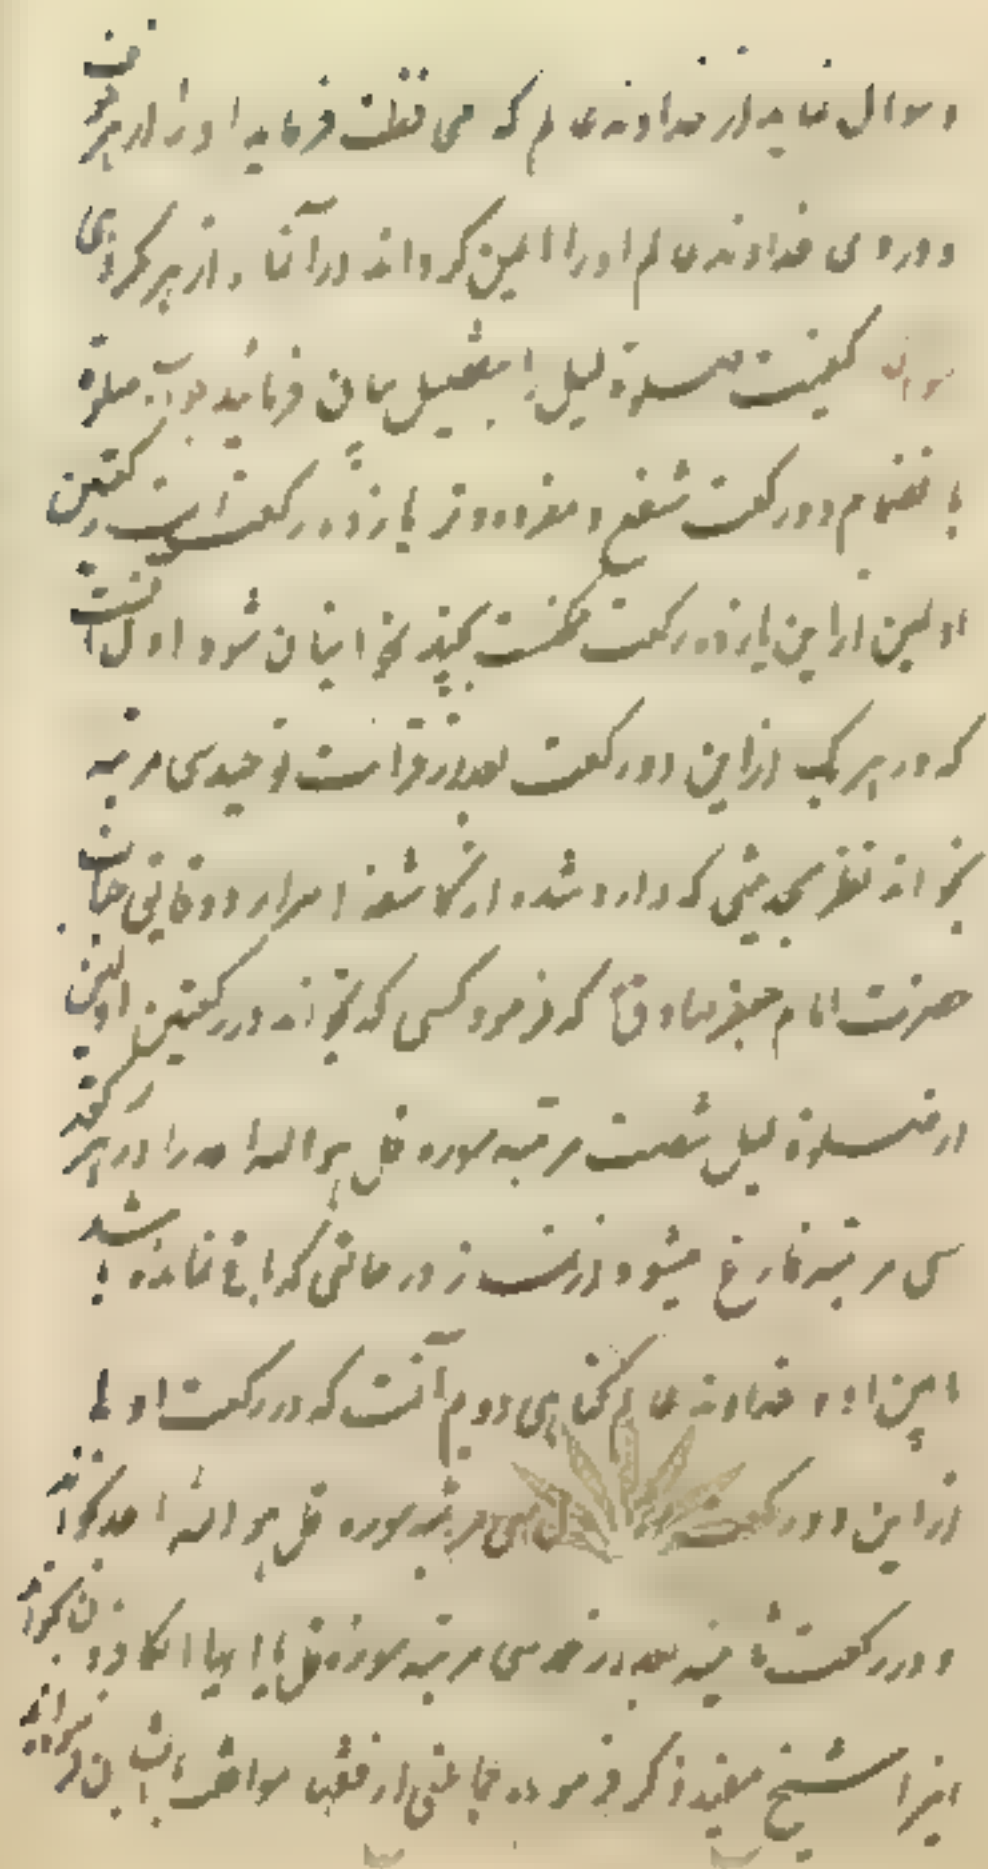 و سوال نماید از خداوند عالم که محافظت فرماید او را از هر خوف
و دردی خداوند عالم او را ایمن گرداند در آنجا و از هر مکروهی
سوال کیفیت صلوة لیل را بتفصیل بیان فرمائید جواب صلوة
با انضمام دو رکعت شفع و مفرده وتر یازده رکعت است رکعتین
اولیین از این یازده رکعت بچند نحو اینان شود اول آنست
که در هر یک از این دو رکعت بعد از قرائت توحید سی مرتبه
بخواند نظر بحدیثی که وارد شده از کاشف اسرار و دقایق جناب
حضرت امام جعفر صادق ع که فرمود کسی که بخواند در رکعتین اولیین
از صلوة لیل شصت مرتبه سوره قل هو الله احد را در هر رکعت
سی مرتبه فارغ میشود از نماز در حالتی که باقی نمانده باشد
مابین او و خداوند عالم گناهی دوم آنست که در رکعت اولی
از این دو رکعت سی مرتبه سوره قل هو الله احد بخواند
و در رکعت ثانیه بعد از حمد سی مرتبه سوره قل یا ایها الکافرون بخواند
این را شیخ مفید ذکر فرموده جماعتی از فقها